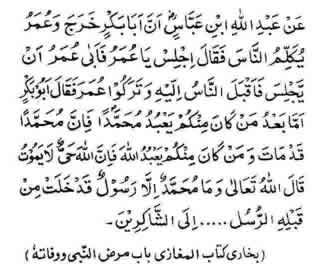 عَنْ عَبْدِ اللهِ ابْنِ عَبَّاسٍؓ اَنَّ اَبَا بَكْرٍ خَرَجَ وَ عُمَرُ
يُكَلِّمُ النَّاسَ فَقَالَ اِجْلِسْ يَا عُمَرُ فَاَبٰى عُمَرُ اَنْ
يَّجْلِسَ فَاَقْبَلَ النَّاسُ اِلَيْهِ وَ تَرَكُوْا عُمَرَ فَقَالَ اَبُوْبَكْرٍ
اَمَّا بَعْدُ مَنْ كَانَ مِنْكُمْ يَعْبُدُ مُحَمَّدًا فَاِنَّ مُحَمَّدًا
قَدْ مَاتَ وَ مَنْ كَانَ مِنْكُمْ يَعْبُدُ اللهَ فَاِنَّ اللهَ حَيٌّ لَا يَمُوْتُ
قَالَ اللهُ تَعَالٰى وَ مَا مُحَمَّدٌ اِلَّا رَسُوْلٌ قَدْ خَلَتْ مِنْ
قَبْلِهِ الرُّسُلُ ..... اِلَى الشَّاكِرِيْنَ ۔
(بخارى كتاب المغازى باب مرض النبى ووفاته)